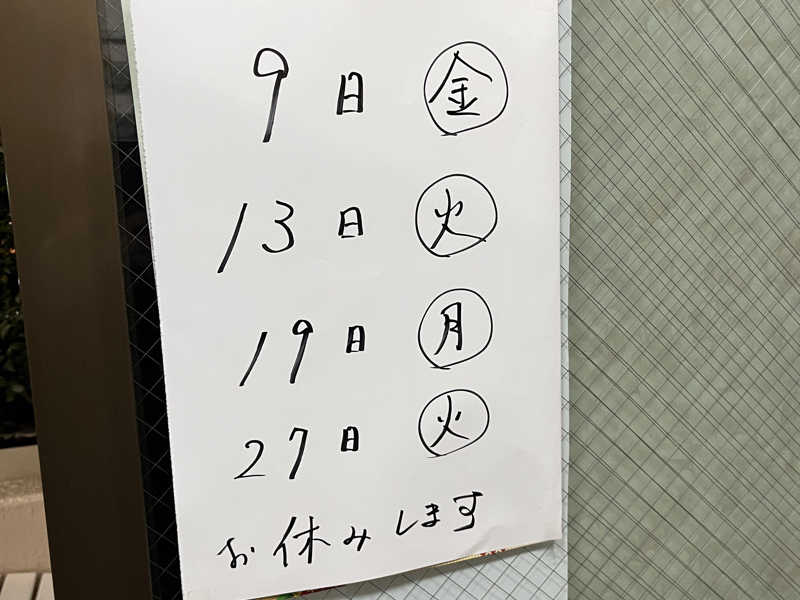 9日 ㊎
13日 ㊋
19日 ㊊
27日 ㊋
お休みします